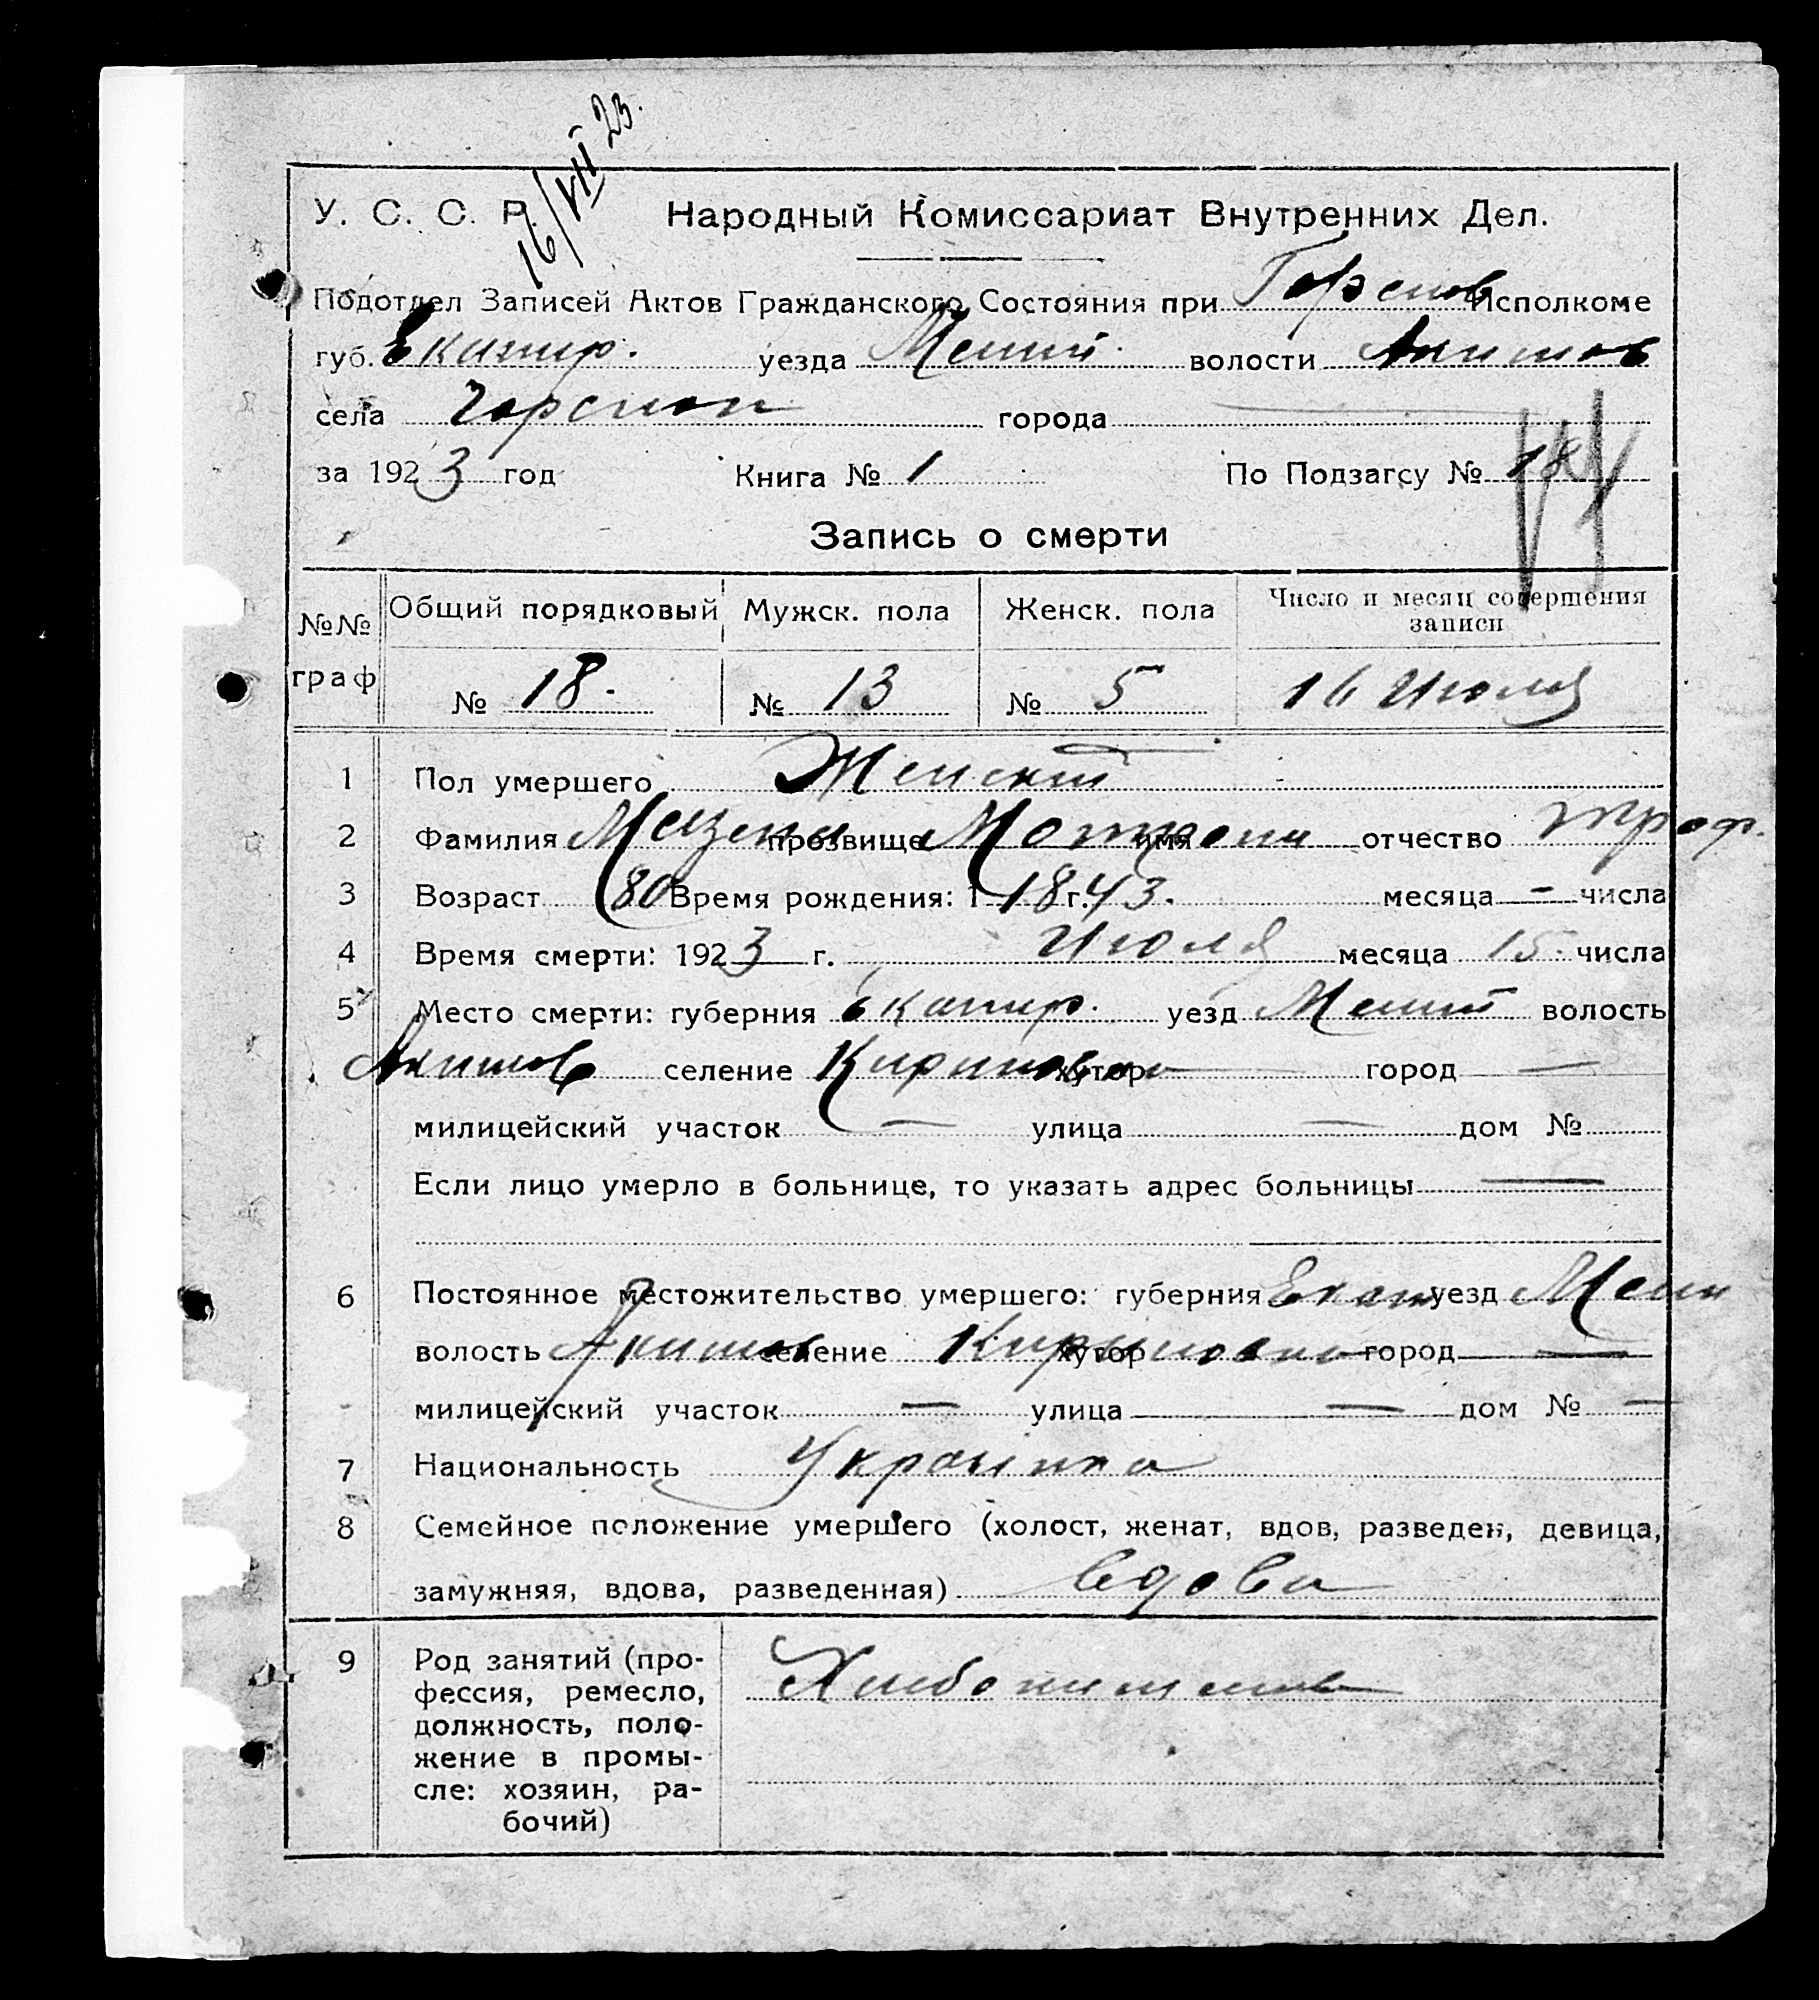 16/VII 23.
У. С. С. Р. Народный Комиссариат Внутренних Дел.
Подотдел Записей Актов Гражданского Состояния при Горснов Исполкоме
губ. Екатир. уезда волости Акимов
села города
за 1923 год Книга № 1 По Подзагсу № 18
Запись о смерти
№№ граф Общий порядковый Мужск. пола Женск. пола Число и месяц совершения записи
№ 18. № 13 № 5 16 Июля
1 Пол умершего Женский
2 Фамилия прозвище имя Мотрони отчество Троф.
3 Возраст 80 Время рождения: 1 1843. г. месяца — числа
4 Время смерти: 1923 г. Июля месяца 15 числа
5 Место смерти: губерния Екатир. уезд волость
Акимов селение хутор город —
милицейский участок — улица — дом №
Если лицо умерло в больнице, то указать адрес больницы —
6 Постоянное местожительство умершего: губерния Екат уезд
волость Акимов селение хутор город —
милицейский участок — улица — дом № —
7 Национальность Украинка
8 Семейное положение умершего (холост, женат, вдов, разведен, девица,
замужняя, вдова, разведенная) вдова
9 Род занятий (про-
фессия, ремесло,
должность, поло-
жение в промы-
сле: хозяин, ра-
бочий)